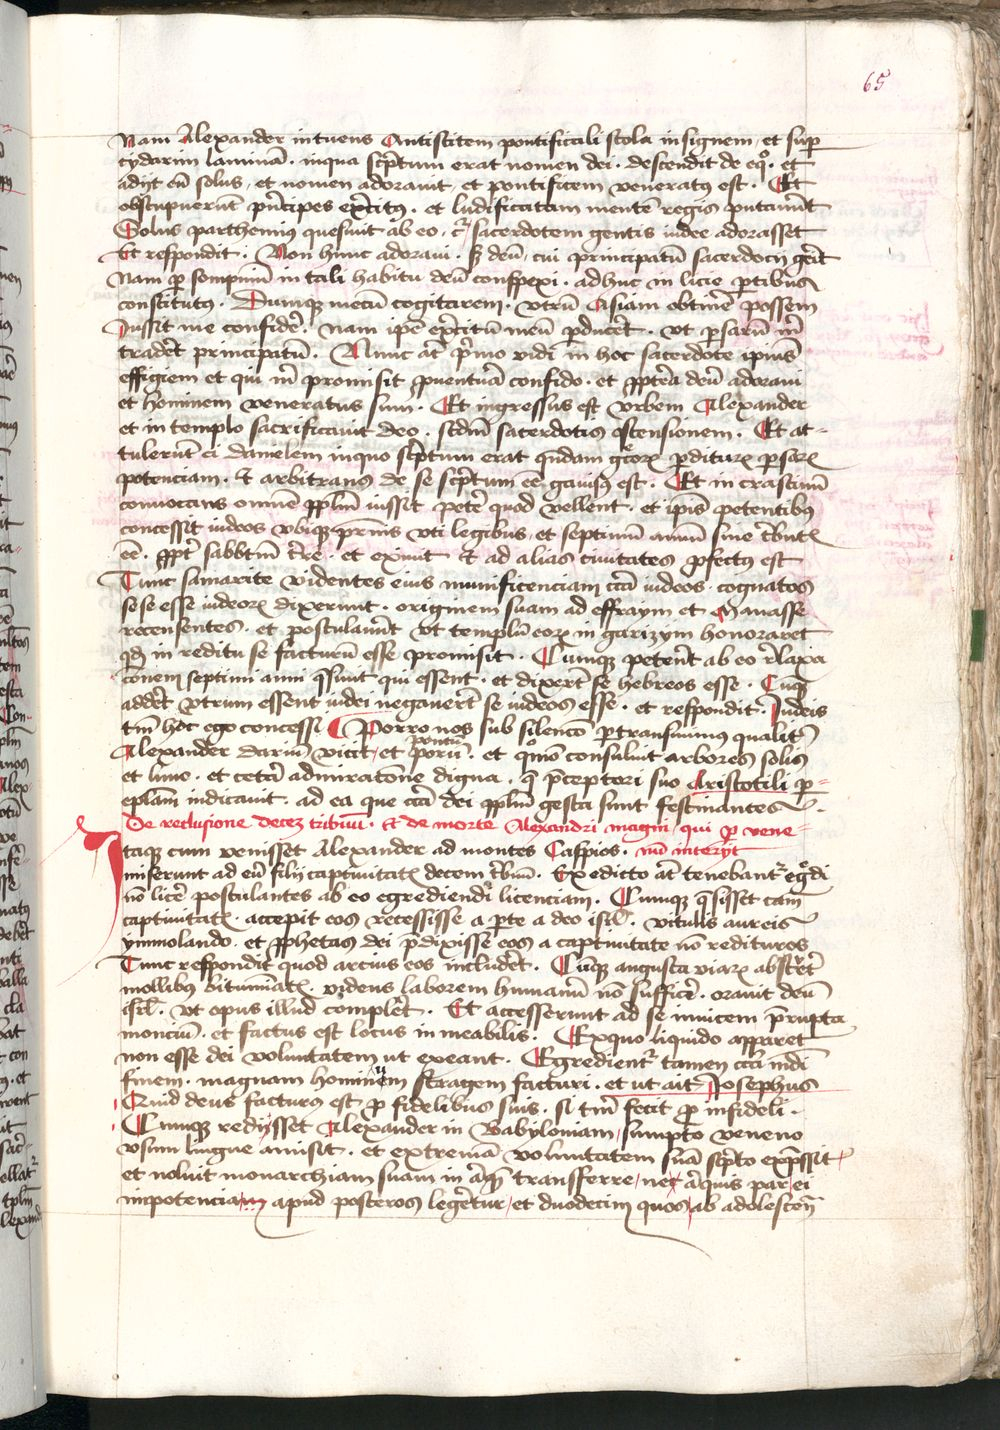 65
Nam Alexander intuens Antistitem pontificali stola insignem, et sup
cydarim laminā. inqua scʼptum erat nomen dei. descendit de eqº. et
adijt eū solus, et nomen adorauit, et pontificem veneratus est. Et
obstupuerūt pʼncipes exʼcitꝰ. et ludificatam mentē regis putauēt
Solus parthemiꝰ quesiuit ab eo, cʼ sacerdotem gentis iudee adorasset
Et respondit. Non hunc adoraui. sʒ deū, cui principatū sacerdocij gerit
Nam ꝑ sompniū in tali habitu deū conspexi. adhuc in licie ꝑtibus
constitutꝰ. Dumqʒ mecū cogitarem. vtrū Asiam obtinē possem
Jussit me confidēʼ. nam ipē exʼcitū meū ꝑducēt. vt ꝑsarū mʼ
tradēt principatū. Nunc at pʼmo vidi in hoc sacerdote ipius
effigiem et qui mʼ promisit ꝓuenturā confido. et ꝓpterea deū adoraui
et hominem veneratus sum. Et ingressus est vrbem Alexander
et in templo sacrificauit deo. scdm sacerdotis ostensionem. Et at-
tulerūt ei danielem inquo scʼptum erat qndam gʼcoꝝ ꝑditurꝝ ꝑsaꝝ
potenciam. Et arbitrans de se scʼptum eē gauisꝰ est. Et in crastinū
conuocans omnē ꝓplm̄ iussit petēʼ quod vellent. et ipīs petentibꝰ
concessit iudeos vbiqʒ pʼmis vti legibus, et septimū annū sine tʼbut
eē. ꝓptʼ sabbtm̄ tʼre. et exiuit Et ad alias ciuitates ꝓfectus est
Tunc samarite videntes eius munificenciam ccʼa iudeos. cognatos
sese esse iudeoꝝ dixerunt. originem suam ad effraym et Manasse
recensentes. et postulauēt vt templū eoꝝ in garizym honoraret
qd in reditu se facturū esse promisit. Cumqʒ petent ab eo rʼlaxa
cionem septimi anni qsiuit qui essent. et dixert se hebreos esse. Cuqʒ
addēt vtrum essent iudei negauert se iudeos esse. et respondit. Judeis
tm̄ hoc ego concessi Porro nos sub silencō ꝑtransimus qualitʼ
pontū
Alexander dariū vicit, et porū. et qmō consuluit arbores solis
et lune. et cetʼa admiratōne digna. q pʼceptori suo Aristotili ꝑ
eplam indicauit. ad ea que ccʼa dei ꝓplm̄ gesta sunt festinantes.
De reclusione decez tribuū. Et de morte Alexandri magni, qui ꝑ vene-
Itaqʒ cum venisset Alexander ad montes Caspios. nū interijt
miserunt ad eū filij captiuitatʼ decem tʼbuū. Ex edicto at tenebantʼ egʼdi
nō licē postulantes ab eo egrediendi licenciam. Cumqʒ qsisset cam
captiuitatʼ. accepit eos recessisse a ꝑte a deo isrl. vitulis aureis
ymmolando. et ꝓphetas dei pʼdixisse eos a captiuitate nō redituros
Tunc respondit quod arcius eos includēt. Cūqʒ angusta viaꝝ abstrēt
mollibꝰ bituminatʼ. videns laborem humanū nō sufficē. orauit deū
isrl. vt opus illud complēt. Et accesserunt ad se inuicem pʼrupta
monciū. et factus est locus in meabilis. Exquo liquido apparet
non esse dei voluntatem ut exeant. Egredientʼ tamen ccʼa mdi
finem. magnam hominum stragem facturi. et ut ait Josephus
Quid deus facturꝰ est ꝓ fidelibus suis. si tm̄ fecit ꝓ infideli.
Cumqʒ redijsset Alexander in Babyloniam, sumpto veneno
vsum lingue amisit. et extremā voluntatem suā scpʼto expʼssit
et noluit monarchiam suam in aqʼ transferre, ne aʼquis par ei
inpotencia apud posteros legētur, et duodecim quos ab adolescen